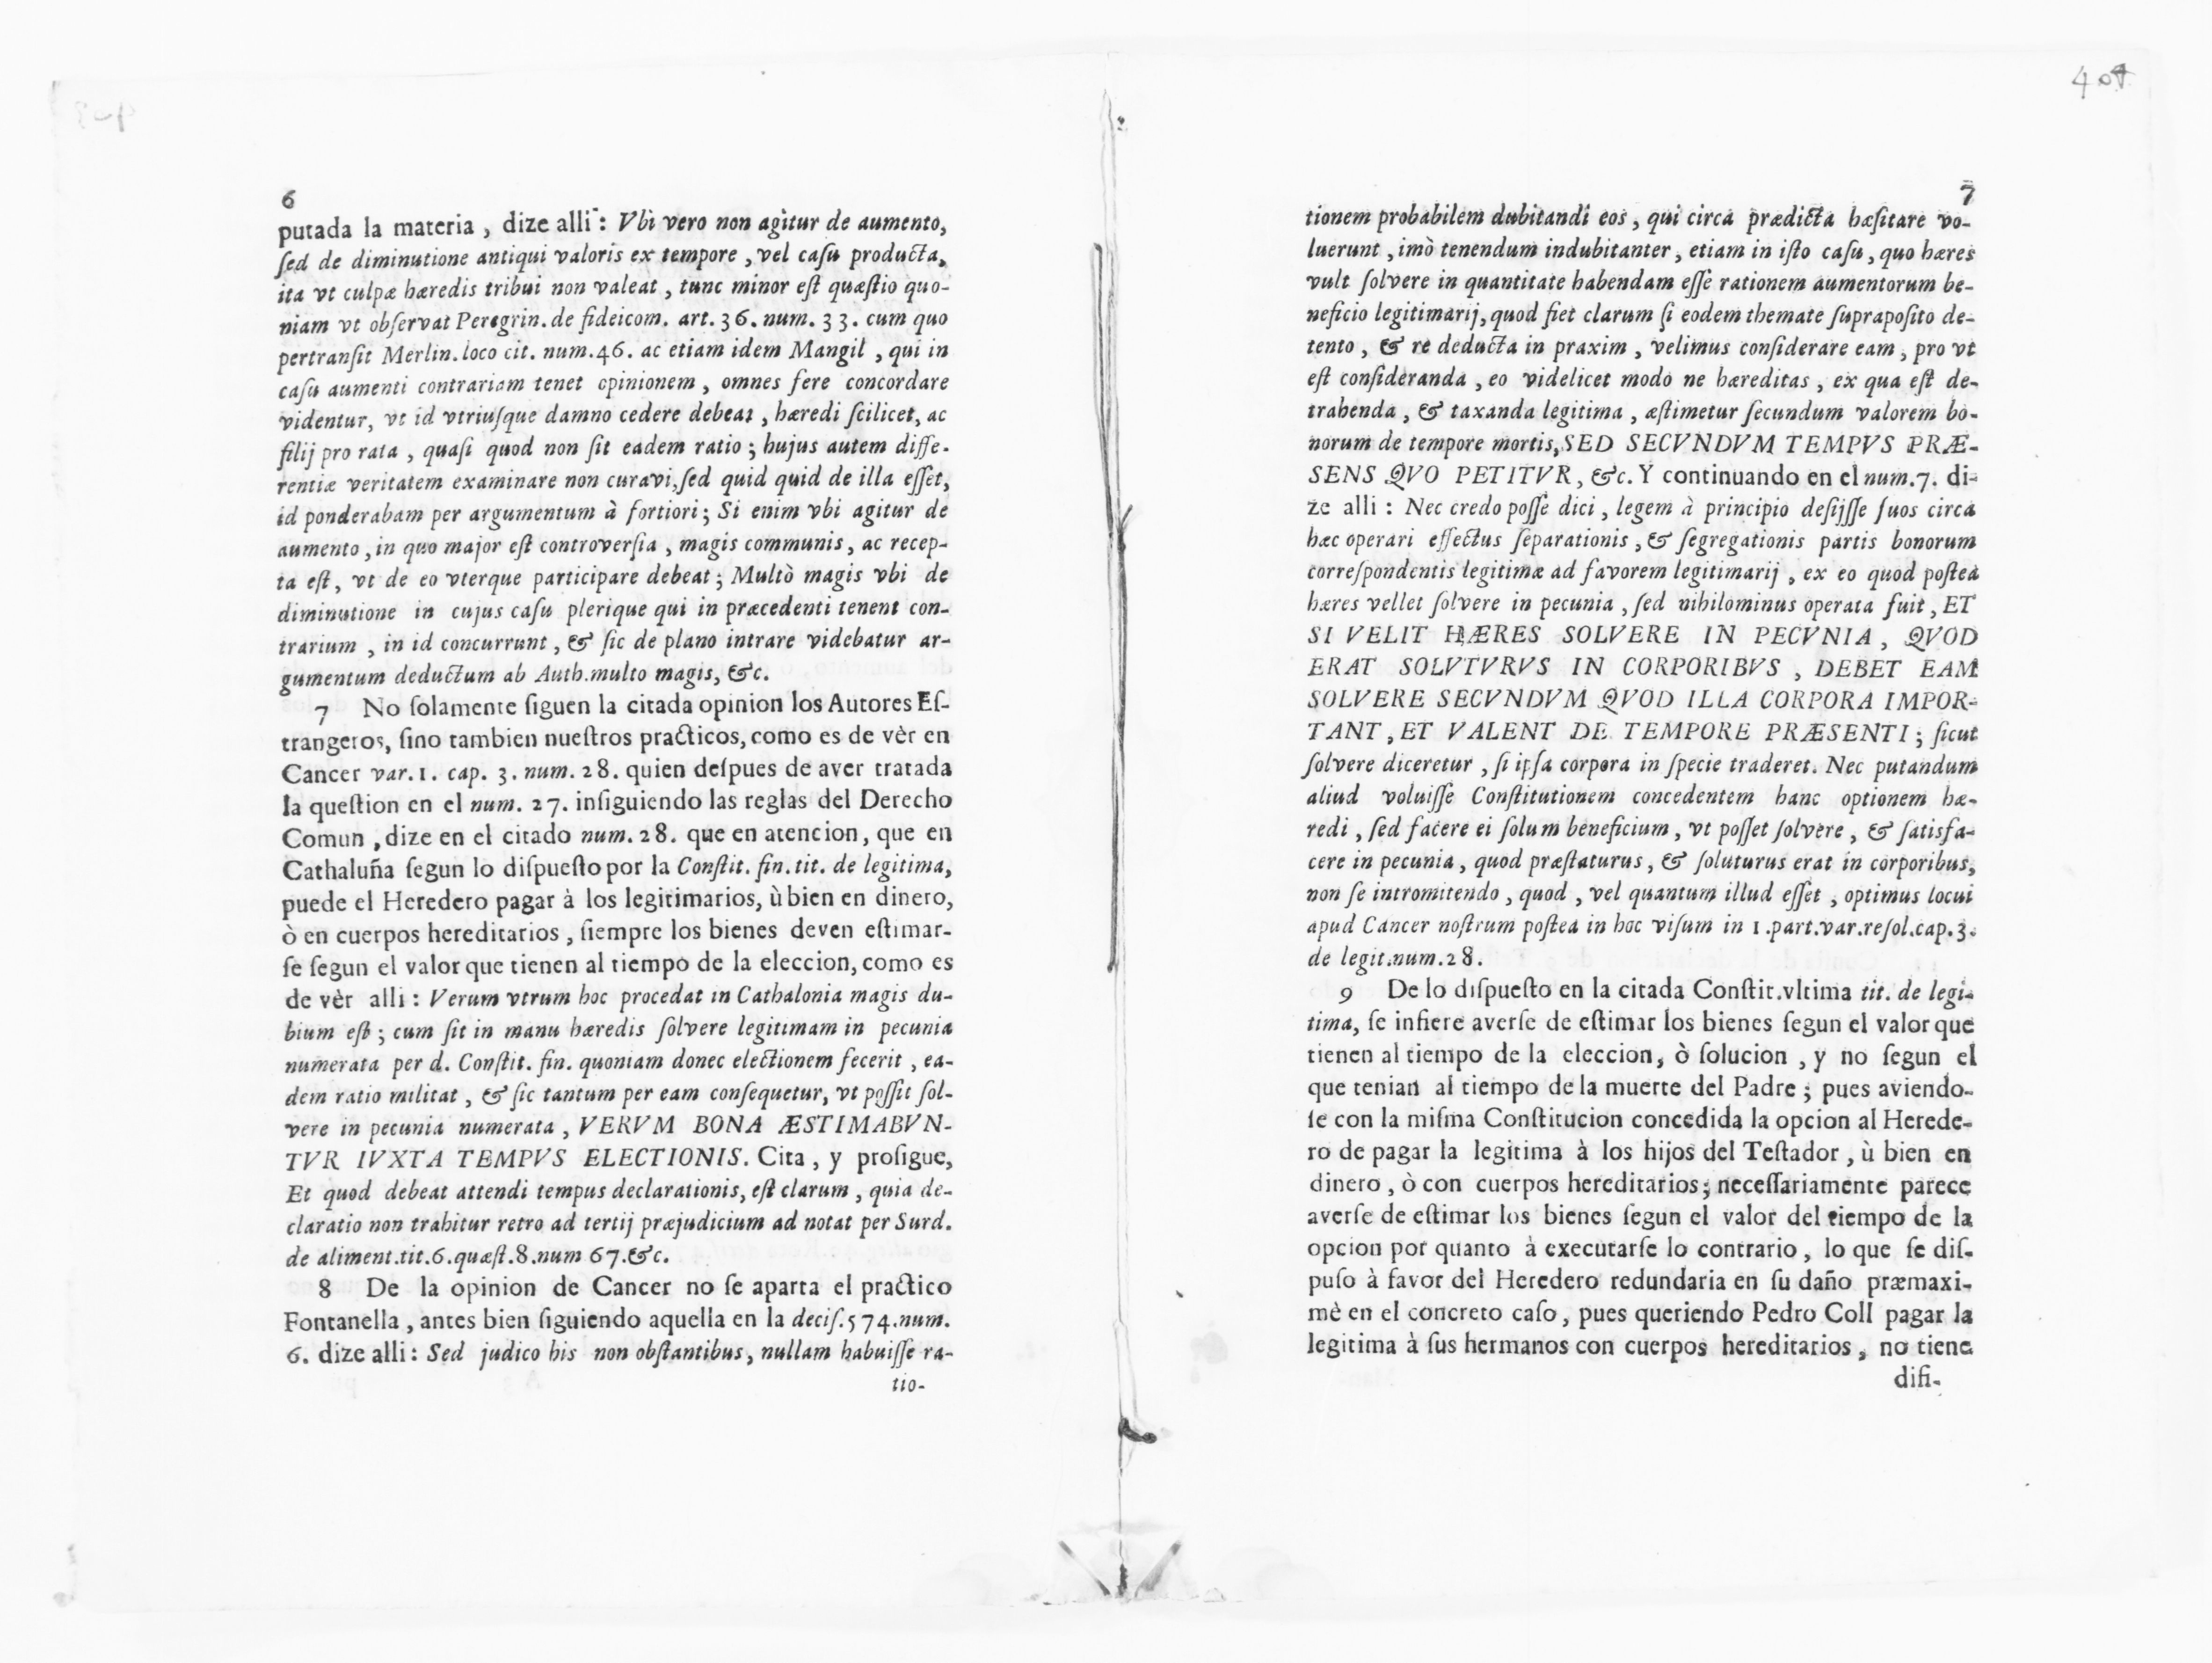 6
putada la materia, dize alli: Vbi vero non agitur de aumento,
ſed de diminutione antiqui valoris ex tempore, vel caſu producta,
ita vt culpæ hæredis tribui non valeat, tunc minor eſt quæſtio quo-
niam vt obſervat Peregrin. de fideicom. art. 36. num. 33. cum quo
pertranſit Merlin. loco cit. num. 46. ac etiam idem Mangil, qui in
caſu aumenti contrariam tenet opinionem, omnes fere concordare
videntur, vt id vtriuſque damno cedere debeat, hæredi ſcilicet, ac
filij pro rata, quaſi quod non ſit eadem ratio; hujus autem diffe-
rentiæ veritatem examinare non curavi, ſed quid quid de illa eſſet,
id ponderabam per argumentum à fortiori; Si enim vbi agitur de
aumento, in quo major eſt controverſia, magis communis, ac recep-
ta eſt, vt de eo vterque participare debeat; Multò magis vbi de
diminutione in cujus caſu plerique qui in præcedenti tenent con-
trarium, in id concurrunt, & ſic de plano intrare videbatur ar-
gumentum deductum ab Auth. multo magis, &c.
7 No ſolamente ſiguen la citada opinion los Autores Eſ-
trangeros, ſino tambien nueſtros practicos, como es de vèr en
Cancer var. 1. cap. 3. num. 28. quien deſpues de aver tratada
la queſtion en el num. 27. inſiguiendo las reglas del Derecho
Comun, dize en el citado num. 28. que en atencion, que en
Cathaluña ſegun lo diſpueſto por la Conſtit. fin. tit. de legitima,
puede el Heredero pagar à los legitimarios, ù bien en dinero,
ò en cuerpos hereditarios, ſiempre los bienes deven eſtimar-
ſe ſegun el valor que tienen al tiempo de la eleccion, como es
de vèr alli: Verum vtrum hoc procedat in Cathalonia magis du-
bium eſt; cum ſit in manu hæredis ſolvere legitimam in pecunia
numerata per d. Conſtit. fin. quoniam donec electionem fecerit, ea-
dem ratio militat, & ſic tantum per eam conſequetur, vt poſſit ſol-
vere in pecunia numerata, VERVM BONA ÆSTIMABVN-
TVR IVXTA TEMPVS ELECTIONIS. Cita, y proſigue,
Et quod debeat attendi tempus declarationis, eſt clarum, quia de-
claratio non trahitur retro ad tertij præjudicium ad notat per Surd.
de aliment. tit. 6. quæſt. 8. num 67. &c.
8 De la opinion de Cancer no ſe aparta el practico
Fontanella, antes bien ſiguiendo aquella en la deciſ. 574. num.
6. dize alli: Sed judico his non obſtantibus, nullam habuiſſe ra-
tio-
404
7
tionem probabilem dubitandi eos, qui circa prædicta hæſitare vo-
luerunt, imò tenendum indubitanter, etiam in iſto caſu, quo hæres
vult ſolvere in quantitate habendam eſſe rationem aumentorum be-
neficio legitimarij, quod fiet clarum ſi eodem themate ſupraposito de-
tento, & re deducta in praxim, velimus conſiderare eam, pro vt
eſt conſideranda, eo videlicet modo ne hæreditas, ex qua eſt de-
trahenda, & taxanda legitima, æſtimetur ſecundum valorem bo-
norum de tempore mortis, SED SECVNDVM TEMPVS PRÆ-
SENS QVO PETITVR, &c. Y continuando en el num. 7. di-
ze alli: Nec credo poſſe dici, legem à principio deſijſſe ſuos circa
hæc operari effectus ſeparationis, & ſegregationis partis bonorum
correſpondentis legitimæ ad favorem legitimarij, ex eo quod poſtea
hæres vellet ſolvere in pecunia, ſed nihilominus operata fuit, ET
SI VELIT HÆRES SOLVERE IN PECVNIA, QVOD
ERAT SOLVTVRVS IN CORPORIBVS, DEBET EAM
SOLVERE SECVNDVM QVOD ILLA CORPORA IMPOR-
TANT, ET VALENT DE TEMPORE PRÆSENTI; ſicut
ſolvere diceretur, ſi ipſa corpora in ſpecie traderet. Nec putandum
aliud voluiſſe Conſtitutionem concedentem hanc optionem hæ-
redi, ſed facere ei ſolum beneficium, vt poſſet ſolvere, & ſatisfa-
cere in pecunia, quod præſtaturus, & ſoluturus erat in corporibus,
non ſe intromitendo, quod, vel quantum illud eſſet, optimus locui
apud Cancer noſtrum poſtea in hoc viſum in 1. part. var. reſol. cap. 3.
de legit. num. 28.
9 De lo diſpueſto en la citada Conſtit. vltima tit. de legi-
tima, ſe infiere averſe de eſtimar los bienes ſegun el valor que
tienen al tiempo de la eleccion, ò ſolucion, y no ſegun el
que tenian al tiempo de la muerte del Padre; pues aviendo-
ſe con la miſma Conſtitucion concedida la opcion al Herede-
ro de pagar la legitima à los hijos del Teſtador, ù bien en
dinero, ò con cuerpos hereditarios; neceſſariamente parece
averſe de eſtimar los bienes ſegun el valor del tiempo de la
opcion por quanto à executarſe lo contrario, lo que ſe diſ-
puſo à favor del Heredero redundaria en ſu daño præmaxi-
mè en el concreto caſo, pues queriendo Pedro Coll pagar la
legitima à ſus hermanos con cuerpos hereditarios, no tiene
difi-